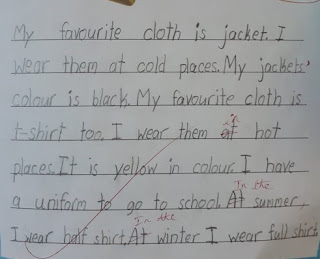 My favourite cloth is jacket. I
wear them at cold places. My jackets'
colour is black. My favourite cloth is
in
t-shirt too. I wear them at hot
places. It is yellow in colour. I have
In the
a uniform to go to school. At summer,
In the
I wear half shirt. At winter I wear full shirt.